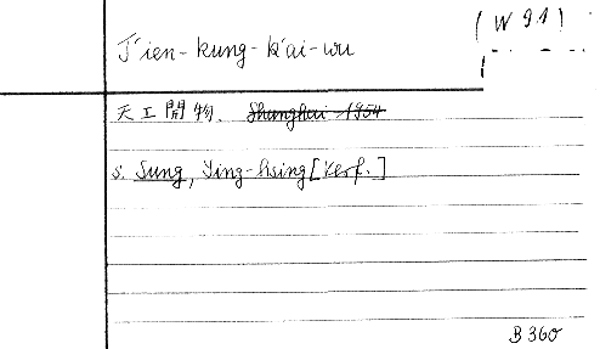 (W 91)
T'ien-kung-k'ai-wu
天工開物. Shanghai 1954
s. Sung, Ying-hsing [Verf.]
B 360